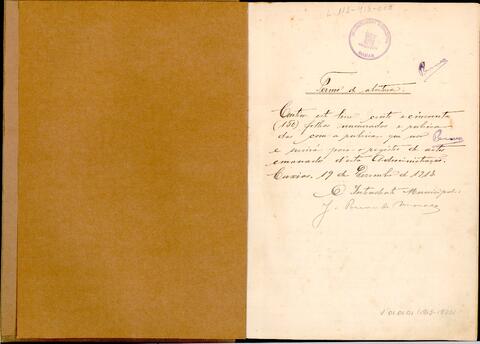 L 113-913-018
Termo de abertura.
Contem este livro cento e cincoenta
(150) folhas numeradas e rubrica
das com a rubrica que uso
e servirá para o registro de actos
emanados d'esta Administração.
Caxias, 19 de Dezembro de 1912
O Intendente Municipal:
J. Penna de Moraes